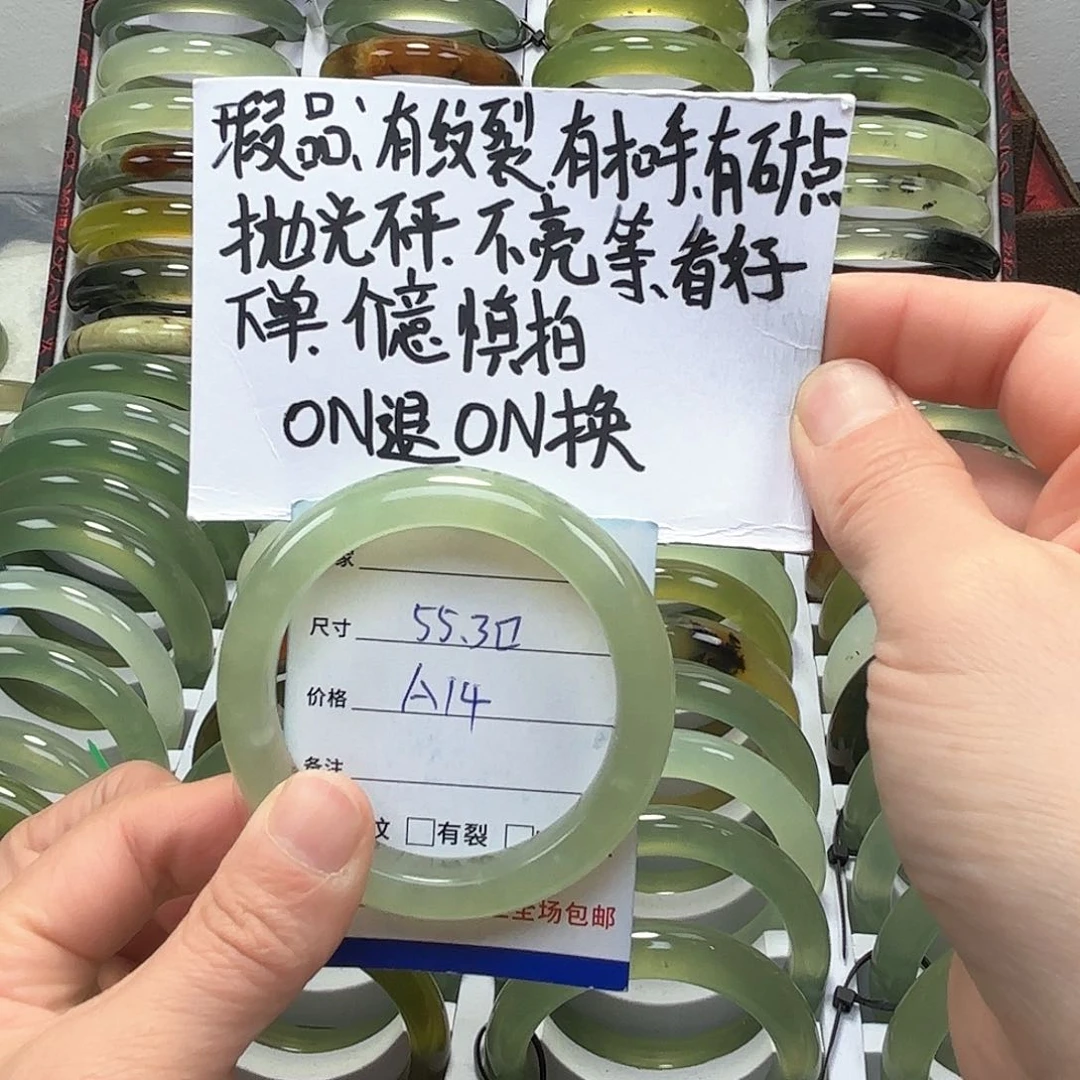 瑕品、有纹裂、有扣手、有矿点
抛光砰、不亮等、看好
下单、介意慎拍
ON退 ON换
家
尺寸 55.3口
价格 A14
备注
纹 □有裂 □
全场包邮